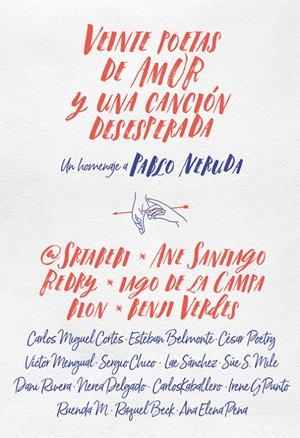 VEINTE POETAS
DE AMOR
Y UNA CANCIÓN
DESESPERADA
Un homenaje a PABLO NERUDA
@SRTABEBI * ANE SANTIAGO
REDRY * IAGO DE LA CAMPA
DION * BENJI VERDES
Carlos Miguel Cortés · Esteban Belmonte · César Poetry
Víctor Mengual · Sergio Chico · Lae Sánchez · Sue S. Mile
Dani Rivera · Nerea Delgado · CarlosKaballero · Irene G Punto
Ruenda M. · Raquel Beck · Ana Elena Pena